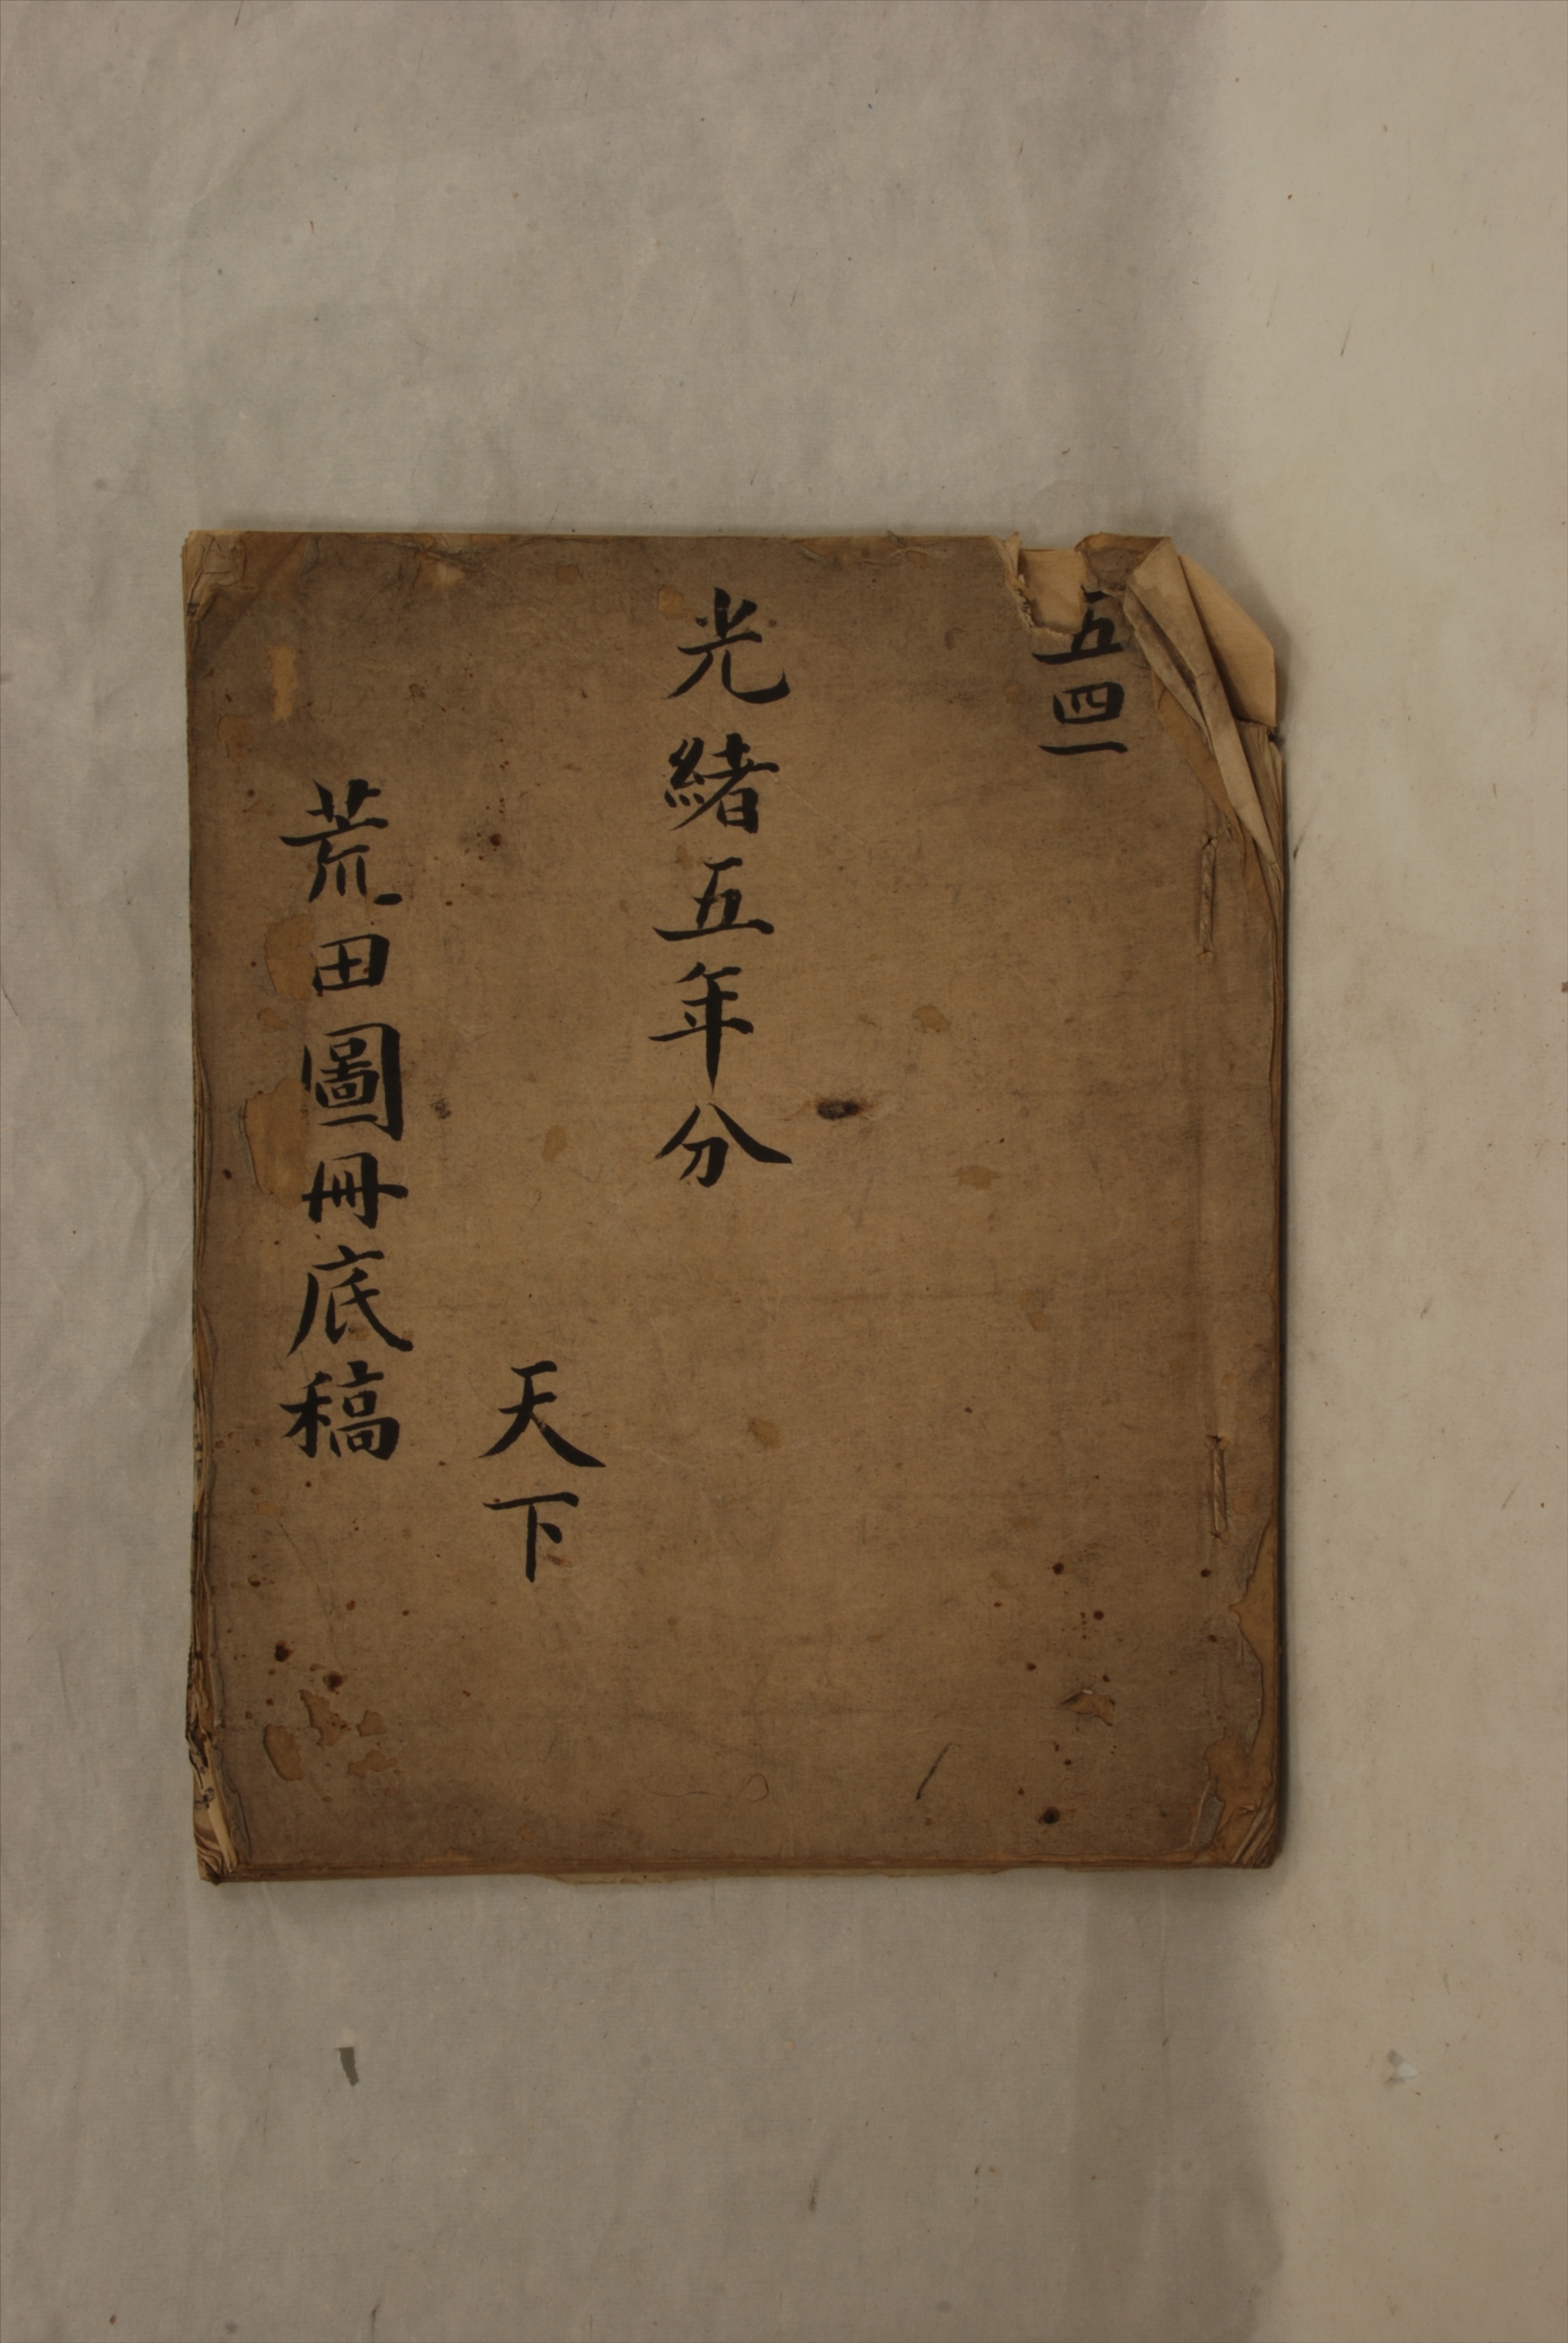 五四一
光緒五年分
天下
荒田圖冊底稿